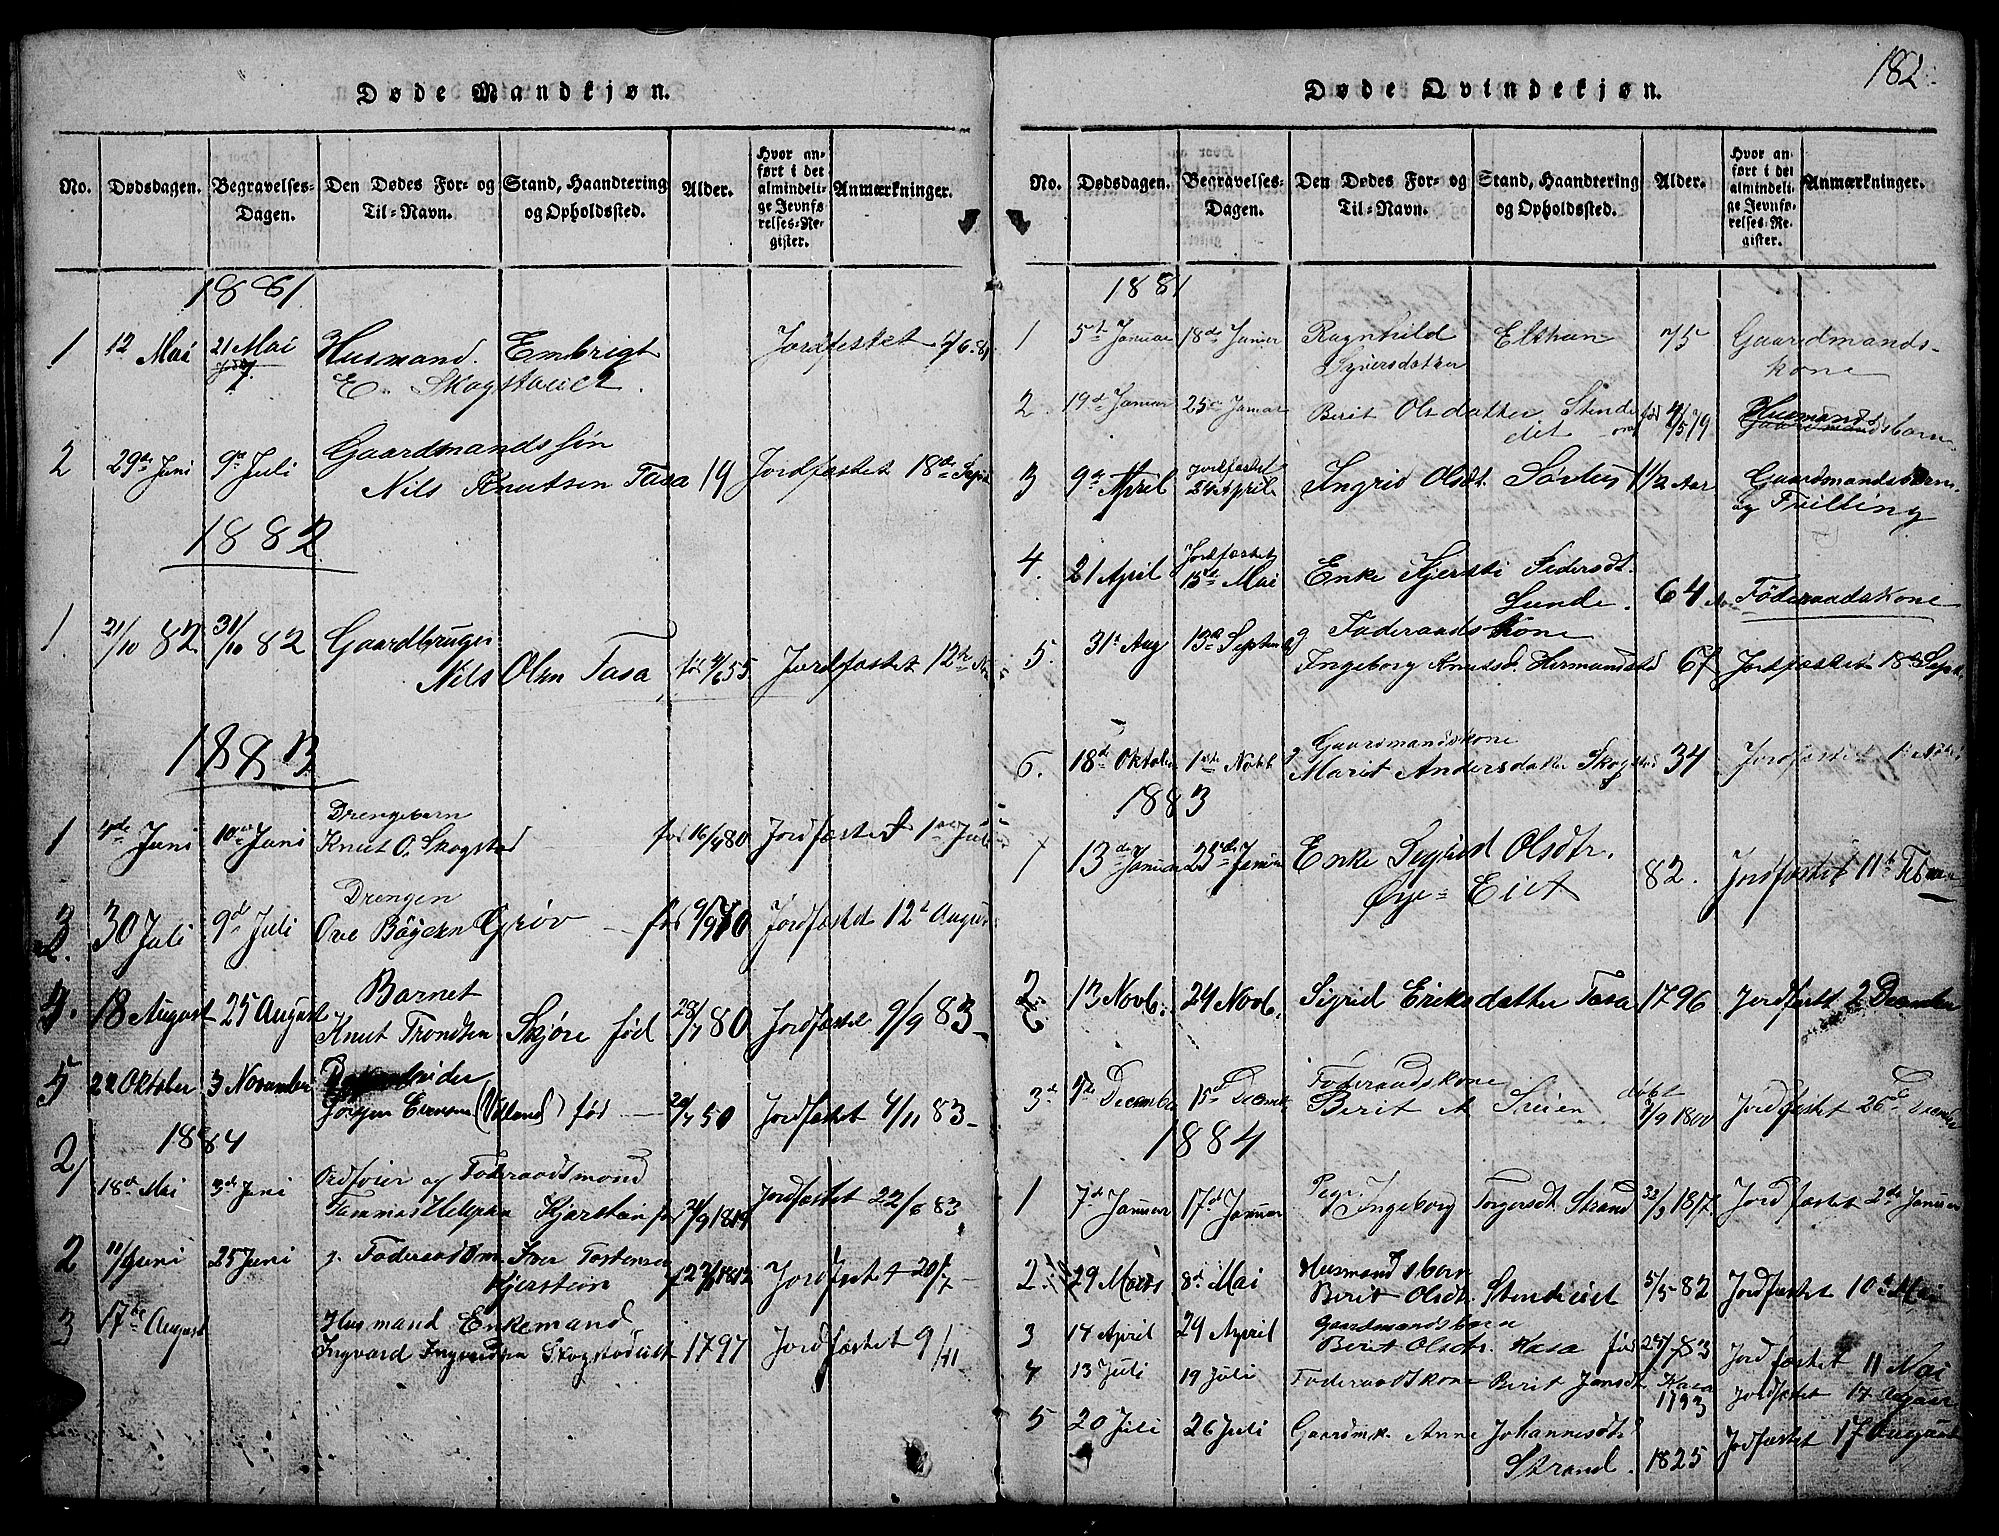 182
Døde Mandkjøn.
No.
Dødsdagen.
Begravelses-
Dagen.
Den Dødes For- og
Til-Navn.
Stand, Haandtering
og Opholdssted.
Alder.
Hvor an-
ført i det
almindeli-
ge Jevnfø-
relses-Re-
gister.
Anmærkninger.
1881
1 12 Mai 21 Mai Husmand. Embrigt Jordfæstet
E. Skogstadeiet.
2 29de Juni 9de Juli Gaardmandssøn
Nils Knutsen Tasa 19 Jordfæstet 18de Sept
1882
1. 21/10 82 31/10 82 Gaardbruger
Nils Olsen Tasa Jordfæstet 12te
1883
1 4de Juni 10de Juni Drengebarn
Knut O. Skogstad fød 16/4 80 Jordfæstet 1ste Juli
2. 30 Juli 9de Juli Drengen
Ove Bøyesen Grøv fød Jordfæstet 12te August
4. 18 August 25 August Barnet
Knut Trondsen Skjøre fød 28/7 80 Jordfæstet 9/9 83
5 22 Oktober 3 November
Jørgen fød 50 Jordfæstet 4/11 83
1884
18de Mai 3de Juni Ordfører og Føderaadsmand
Tammas Helgesen Kjørstein Jordfæstet 22/6 83
2 11/Juni 25 Juni g. Føderaadsm. Iver Tostensen
Kjerstein Jordfæstet 20/7
3 17de August Husmand Enkemand
Ingvard Ingvardsen Skogstadeiet 1797 Jordfæstet 9/11
Døde Qvindekjøn.
No.
Dødsdagen.
Begravelses-
Dagen.
Den Dødes For- og
Til-Navn.
Stand, Haandtering
og Opholdssted.
Alder.
Hvor an-
ført i det
almindeli-
ge Jevnfø-
relses-Re-
gister.
Anmærkninger.
1881
1 5te Januar 18de Januar Ragnhild Elthun 75 Gaardmands-
Syversdatter kone
2. 19de Januar 25de Januar Berit Olsdatter Stende fød 4/5 79 Husmandsbarn
3 9de April Jordfæstet 24 April Ingrid Olsdt. Sørtus 1 1/2 Aar Gaardmandsbarn
og Tvilling
4. 21 April Jordfæstet 15de Mai Enke Kjersti Pedersdt.
Lunde. 64 Føderaadskone
5. 31te Aug 13de September g Føderaadskone
Ingeborg Knutsd. Hermundstad 67 Jordfæstet 18de Sept.
6. 18de Oktober 1ste Novb g Gaardmandskone
Marit Andersdatter Skogstad 34 Jordfæstet 1te
1883
1 13de Januar 23de Januar Enke Sigrid Olsdtr. 82. Jordfæstet 11te Februar
Øye-Eiet
2 13 Novb. 24 Novb. Sigrid Eriksdatter Tasa 1796 Jordfæstet 2 December
3de December 15de Decemb Føderaadskone døbt
Berit A 1800 Jordfæstet 26de December
1884
1 7de Januar 17de Januar Ingeborg Torgersdt Strand Jordfæstet 2de Januar
2. 29 Marts 8de Mai Husmandsbarn
Berit Olsdt. Stendeiet 5/5 82 Jordfæstet 10de Mai
3 14 April 29 April Gaardmandsbarn
Berit Olsdtr. Kasa fød Jordfæstet 11 Mai
4 13 Juli 19 Juli Føderaadskone Berit Jonsdt Kasa
1793 Jordfæstet 17 August
5 20 Juli 26 Juli Gaardmk. Anne Johannesdt
Strand. 1825 Jordfæstet 17 August